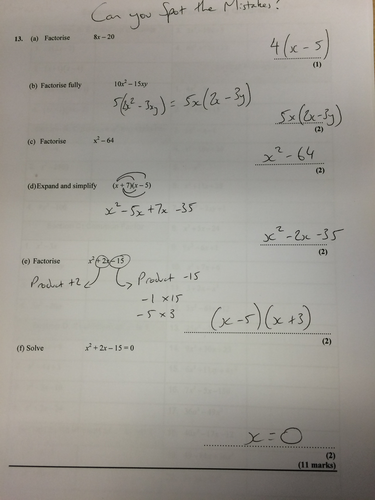 Can you Spot the Mistakes?
13. (a) Factorise 8x – 20
4(x - 5)
(1)
(b) Factorise fully 10x² – 15xy
5(2x² - 3xy) = 5x(2x - 3y)
5x(2x - 3y)
(2)
(c) Factorise x² – 64
x² - 64
(2)
(d) Expand and simplify (x + 7)(x – 5)
x² - 5x + 7x - 35
x² - 2x - 35
(2)
(e) Factorise x² + 2x – 15
Product +2 Product -15
-1 x 15
-5 x 3
(x - 5)(x + 3)
(2)
(f) Solve x² + 2x – 15 = 0
x = 0
(2)
(11 marks)